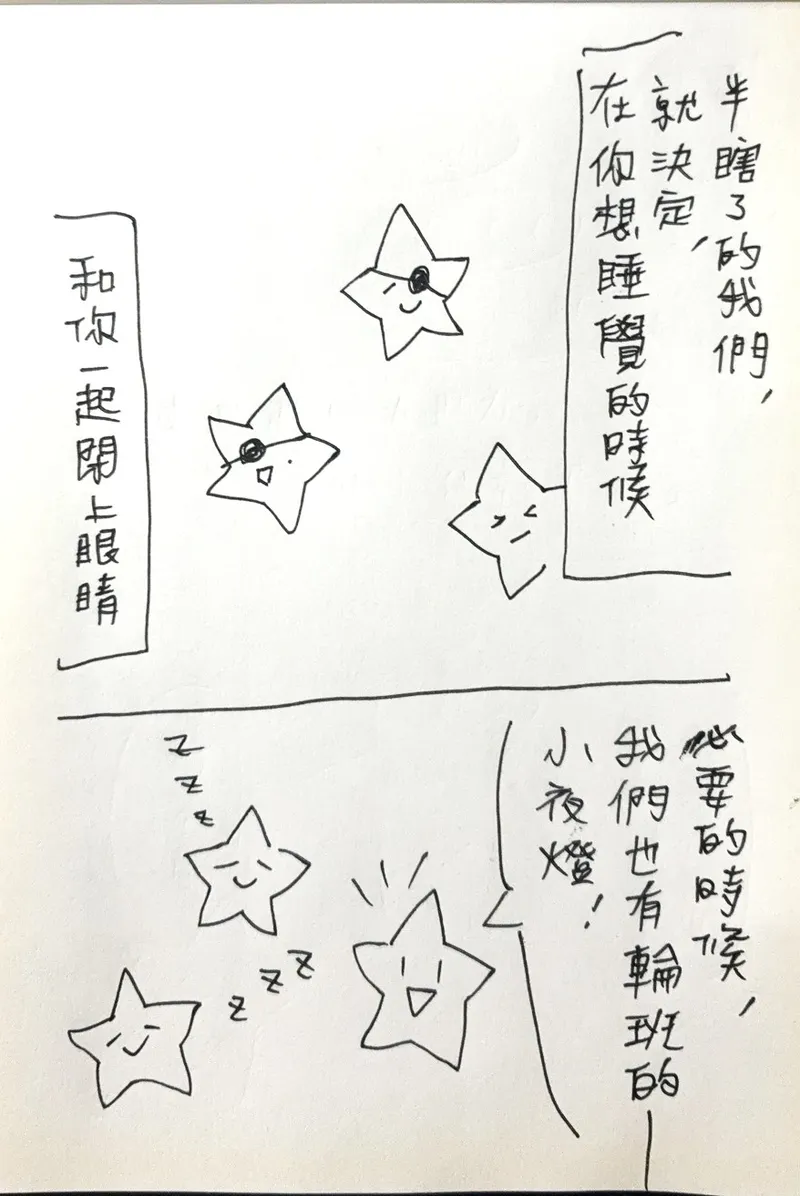 半瞎了的我們，
就決定，
在你想睡覺的時候
和你一起閉上眼睛
必要的時候，
我們也有輪班的
小夜燈！
z
z
z
z
z
z